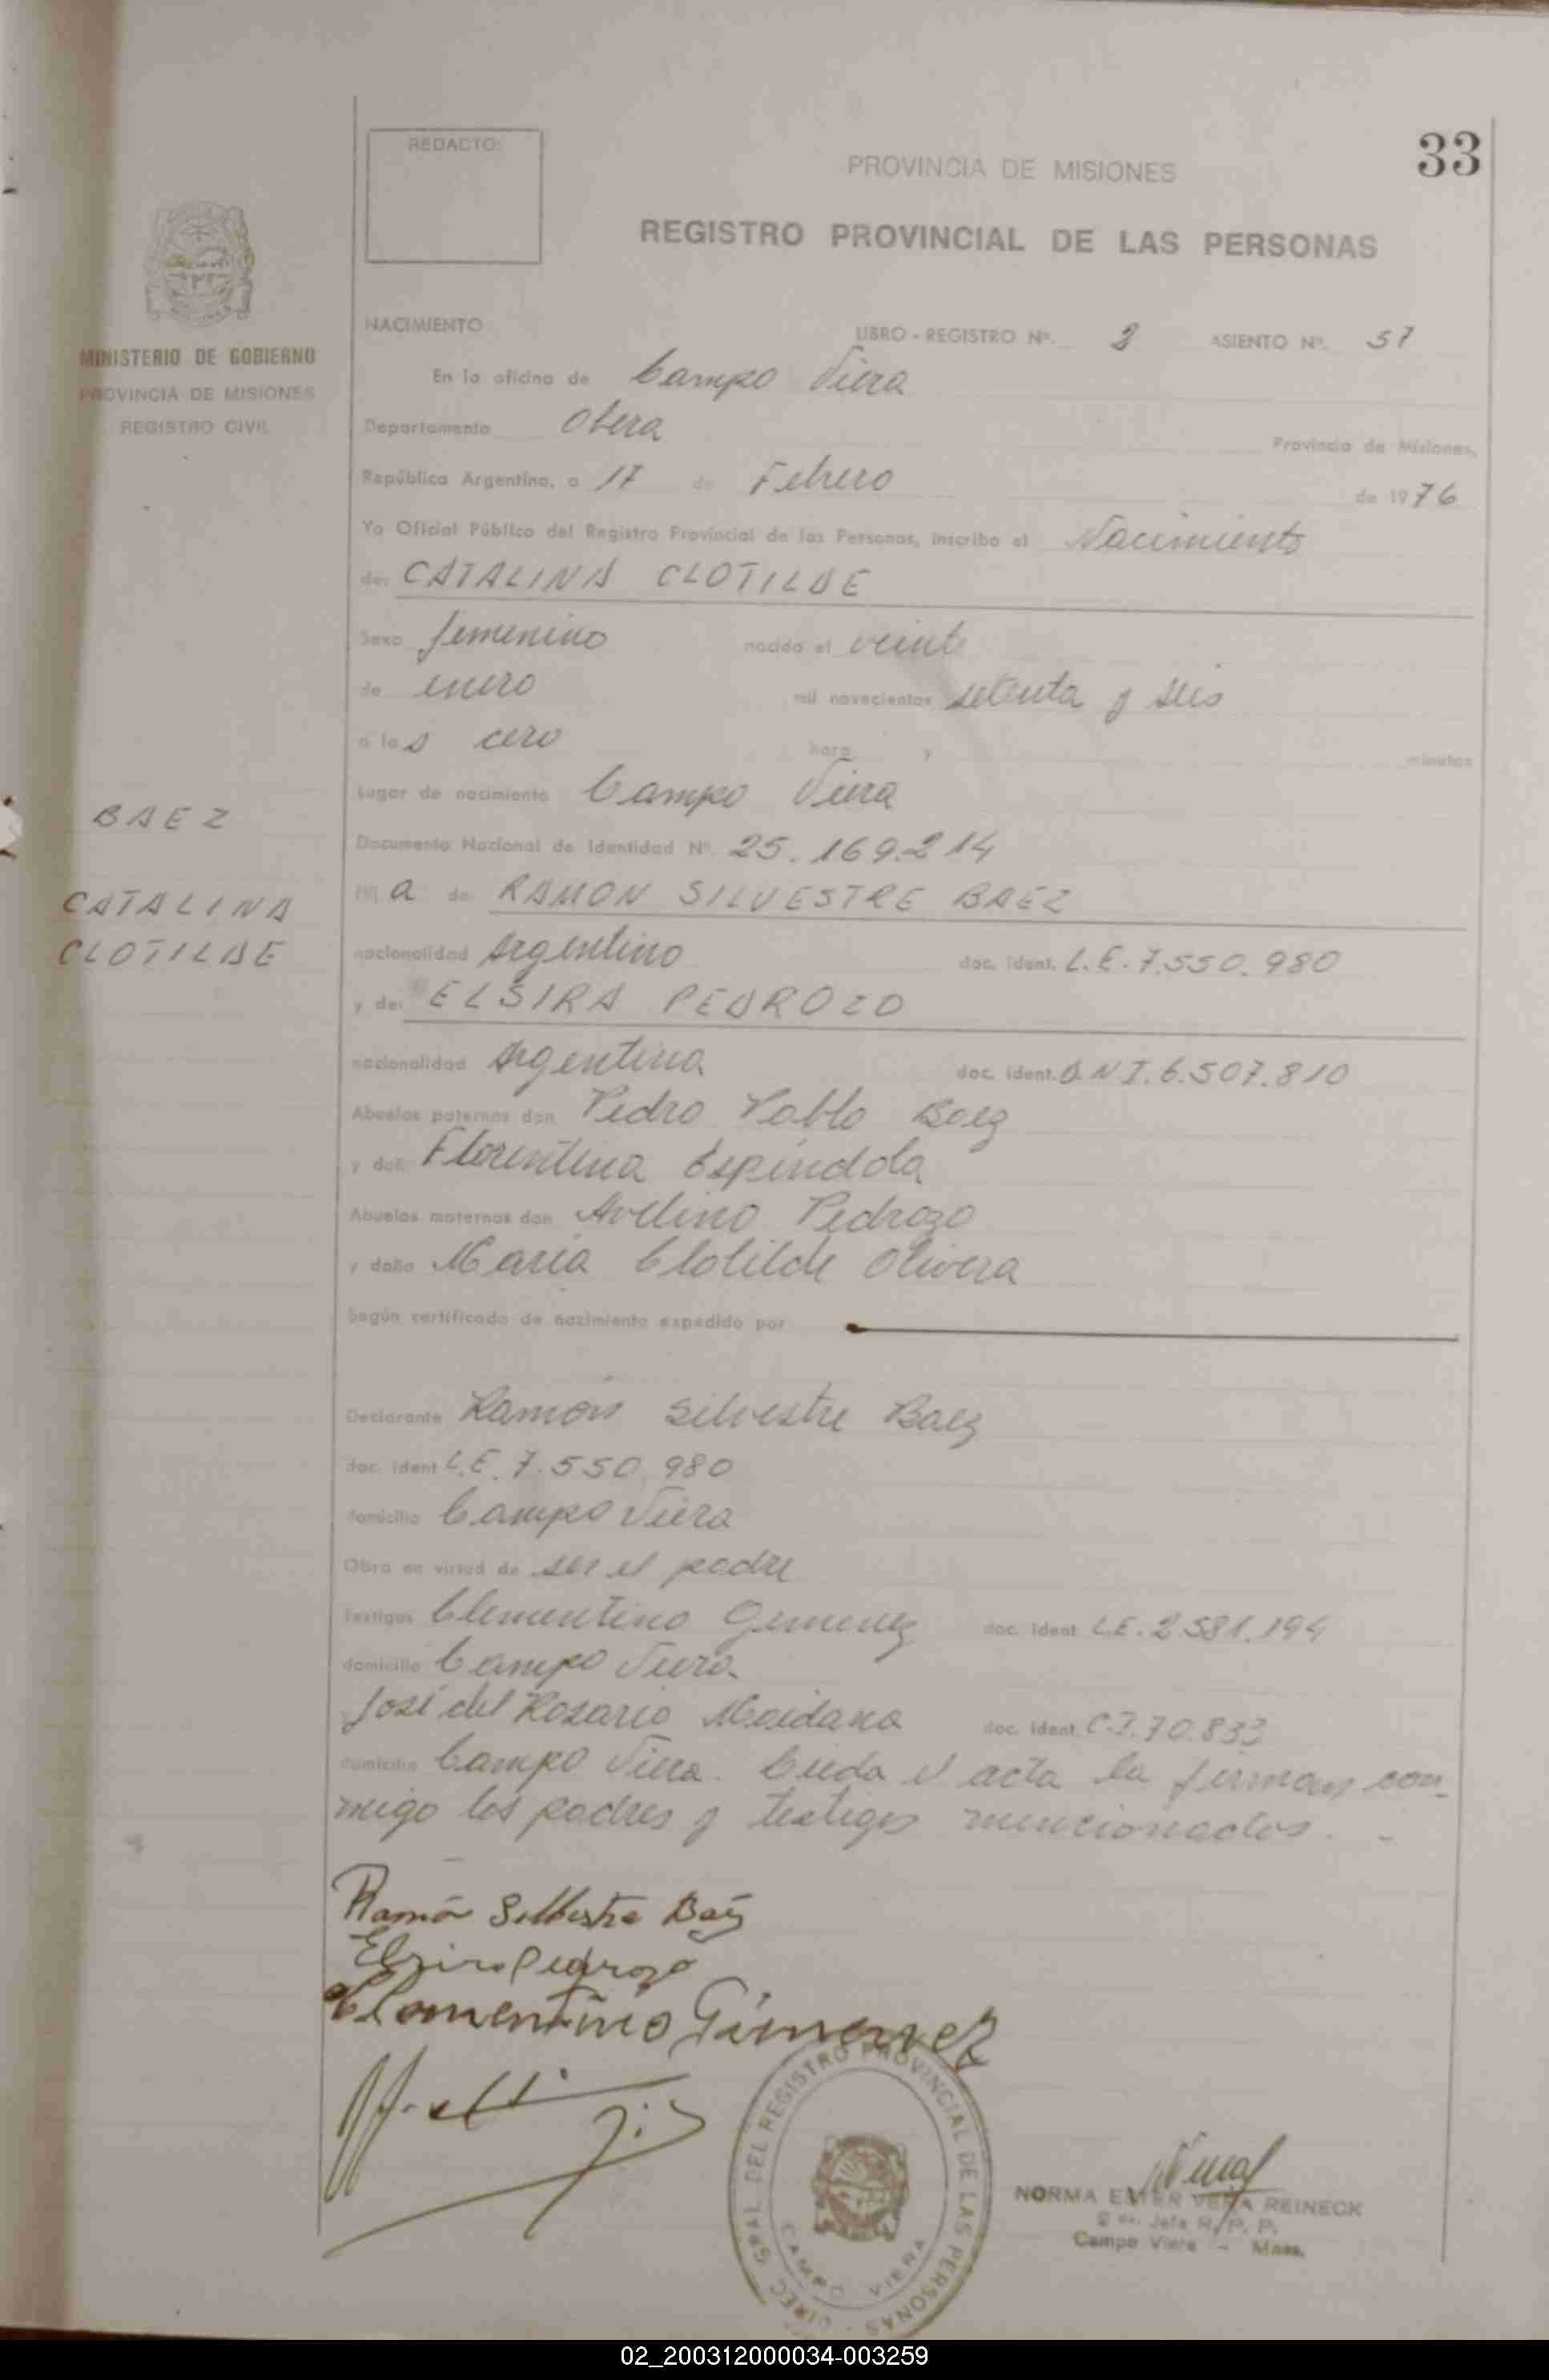 33
REDACTO:
PROVINCIA DE MISIONES
REGISTRO PROVINCIAL DE LAS PERSONAS
MINISTERIO DE GOBIERNO
PROVINCIA DE MISIONES
REGISTRO CIVIL
NACIMIENTO LIBRO - REGISTRO Nº. ASIENTO Nº. 57
En la oficina de Campo Viera
Departamento Obera Provincia de Misiones,
República Argentina, a 17 de Febrero de 1976
Yo Oficial Público del Registro Provincial de las Personas, inscribo el Nacimiento
de: CATALINA CLOTILDE
Sexo femenino nacido el veinte
de enero mil novecientos setenta y seis
a las cero hora y minutos
Lugar de nacimiento Campo Viera
BAEZ
CATALINA
CLOTILDE
Documento Nacional de Identidad Nº. 25.169.214
Hija de: RAMON SILVESTRE BAEZ
nacionalidad Argentino doc. ident. L.E. 7.550.980
y de: ELSIRA PEDROZO
nacionalidad Argentina doc. ident. D.N.I. 6.507.810
Abuelos paternos don Pedro Pablo Baez
y doña Florentina Espindola
Abuelos maternos don Avelino Pedrozo
y doña Maria Clotilde Olivera
Según certificado de nacimiento expedido por
Declarante Ramón Silvestre Baez
doc. ident L.E. 7.550.980
domicilio Campo Viera
Obra en virtud de ser el padre
Testigos Clementino Gimenez doc. ident. L.E. 2.581.194
domicilio Campo Viera
José del Rosario Maidana doc. ident. C.I. 70.833
domicilio Campo Viera. Leida el acta la firman con-
migo los padres y testigos mencionados. -
Ramón Silbestre Baez
Elsira Pedrozo
Clementino Gimenez
DIREC. GRAL. DEL REGISTRO PROVINCIAL DE LAS PERSONAS
CAMPO VIERA
NORMA ESTER VERA REINECK
Jefe R. P. P.
Campo Viera - Mnes.
02_200312000034-003259